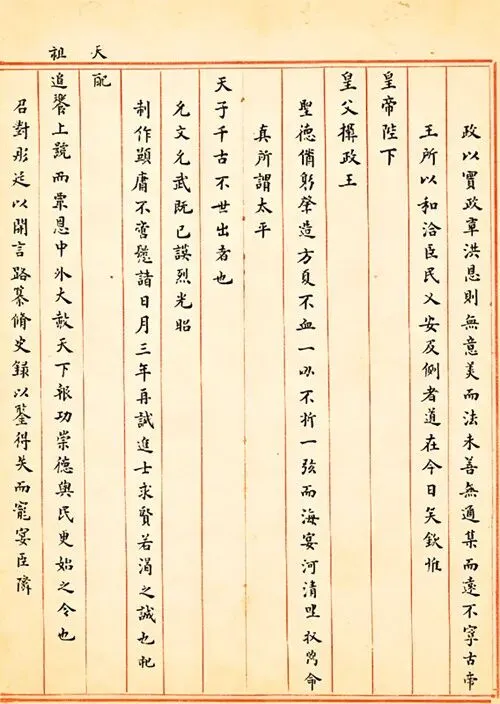 政以實政章洪恩則無意美而法未善無通集而遠不寧古帝
王所以和洽臣民乂安反側者道在今日矣欽惟
皇帝陛下
皇父攝政王
聖德脩躬肇造方夏不血一刃不折一弦而海宴河清命
真所謂太平
天子千古不世出者也
允文允武既已謨烈光昭
制作顯庸不啻懸諸日月三年再試進士求賢若渴之誠也祀
天配
祖追饗上號而覃恩中外大赦天下報功崇德與民更始之令也
召對彤廷以開言路纂脩史録以鑒得失而寵宴臣隣